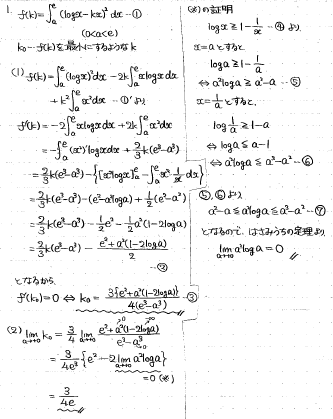 1. f(k)=∫ₐᵉ(logx-kx)²dx …①
(0<a<e)
k₀…f(k)を最小にするようなk
(1) f(k)=∫ₐᵉ(logx)²dx-2k∫ₐᵉxlogxdx
+k²∫ₐᵉx²dx …①' より
f'(k)=-2∫ₐᵉxlogxdx+2k∫ₐᵉx²dx
=-∫ₐᵉ(x²)'logxdx+2/3k(e³-a³)
=2/3k(e³-a³)-{[x²logx]ₐᵉ-∫ₐᵉx²・1/x dx}
=2/3k(e³-a³)-(e²-a²loga)+1/2(e²-a²)
=2/3k(e³-a³)-1/2e²-1/2a²(1-2loga)
=2/3k(e³-a³)-(e²+a²(1-2loga))/2
…②
となるから、
f'(k₀)=0 ⇔ k₀=3{e²+a²(1-2loga)}/4(e³-a³) …③
(2) lim[a→+0] k₀=3/4 lim[a→+0] (e²+a²(1-2loga))/(e³-a³)
=3/4e³{e²-2lim[a→+0]a²loga}
=0 (※)
=3/4e
(※)の証明
logx≧1-1/x …④ より
x=aとすると
loga≧1-1/a
⇔ a²loga≧a²-a …⑤
x=1/aとすると、
log1/a≧1-a
⇔ loga≦a-1
⇔ a²loga≦a³-a² …⑥
⑤,⑥より
a²-a≦a²loga≦a³-a² …⑦
となるので、はさみうちの定理より
lim[a→+0] a²loga=0